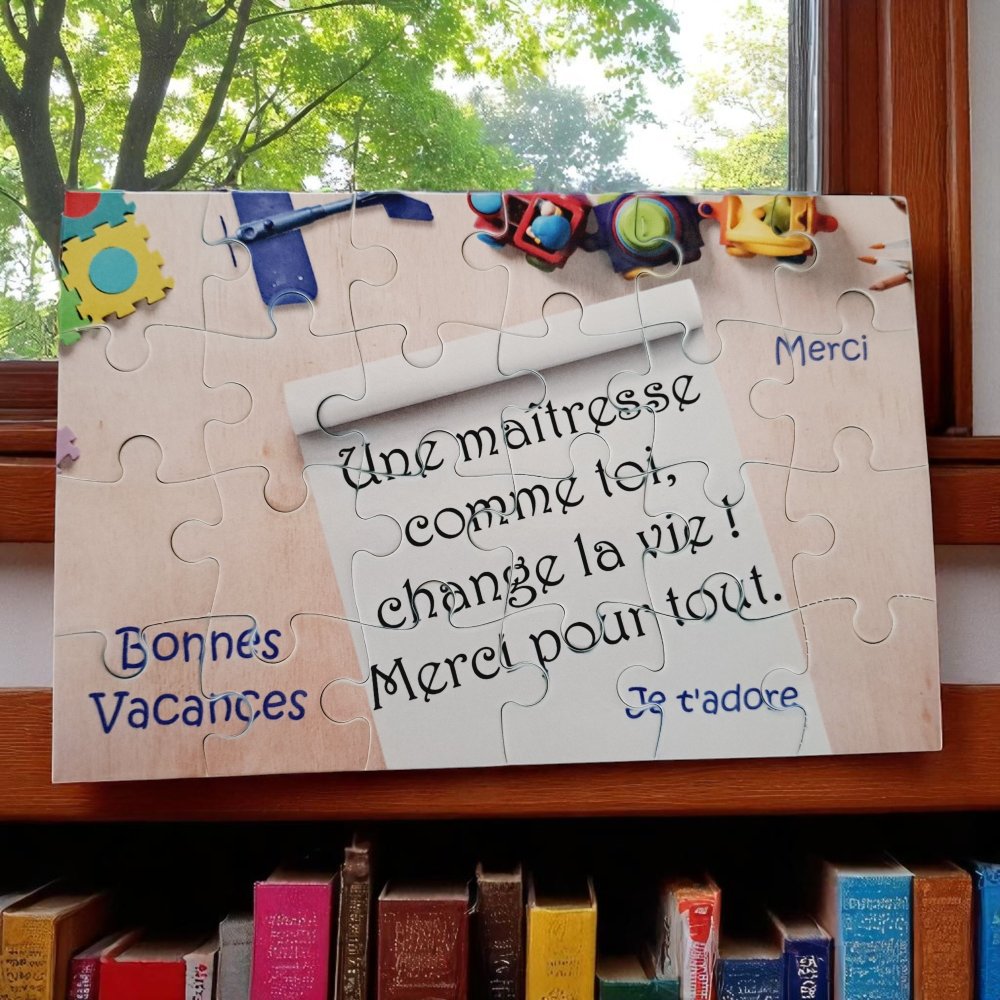 Merci
Une maîtresse
comme toi,
change la vie !
Merci pour tout.
Bonnes
Vacances
Je t'adore